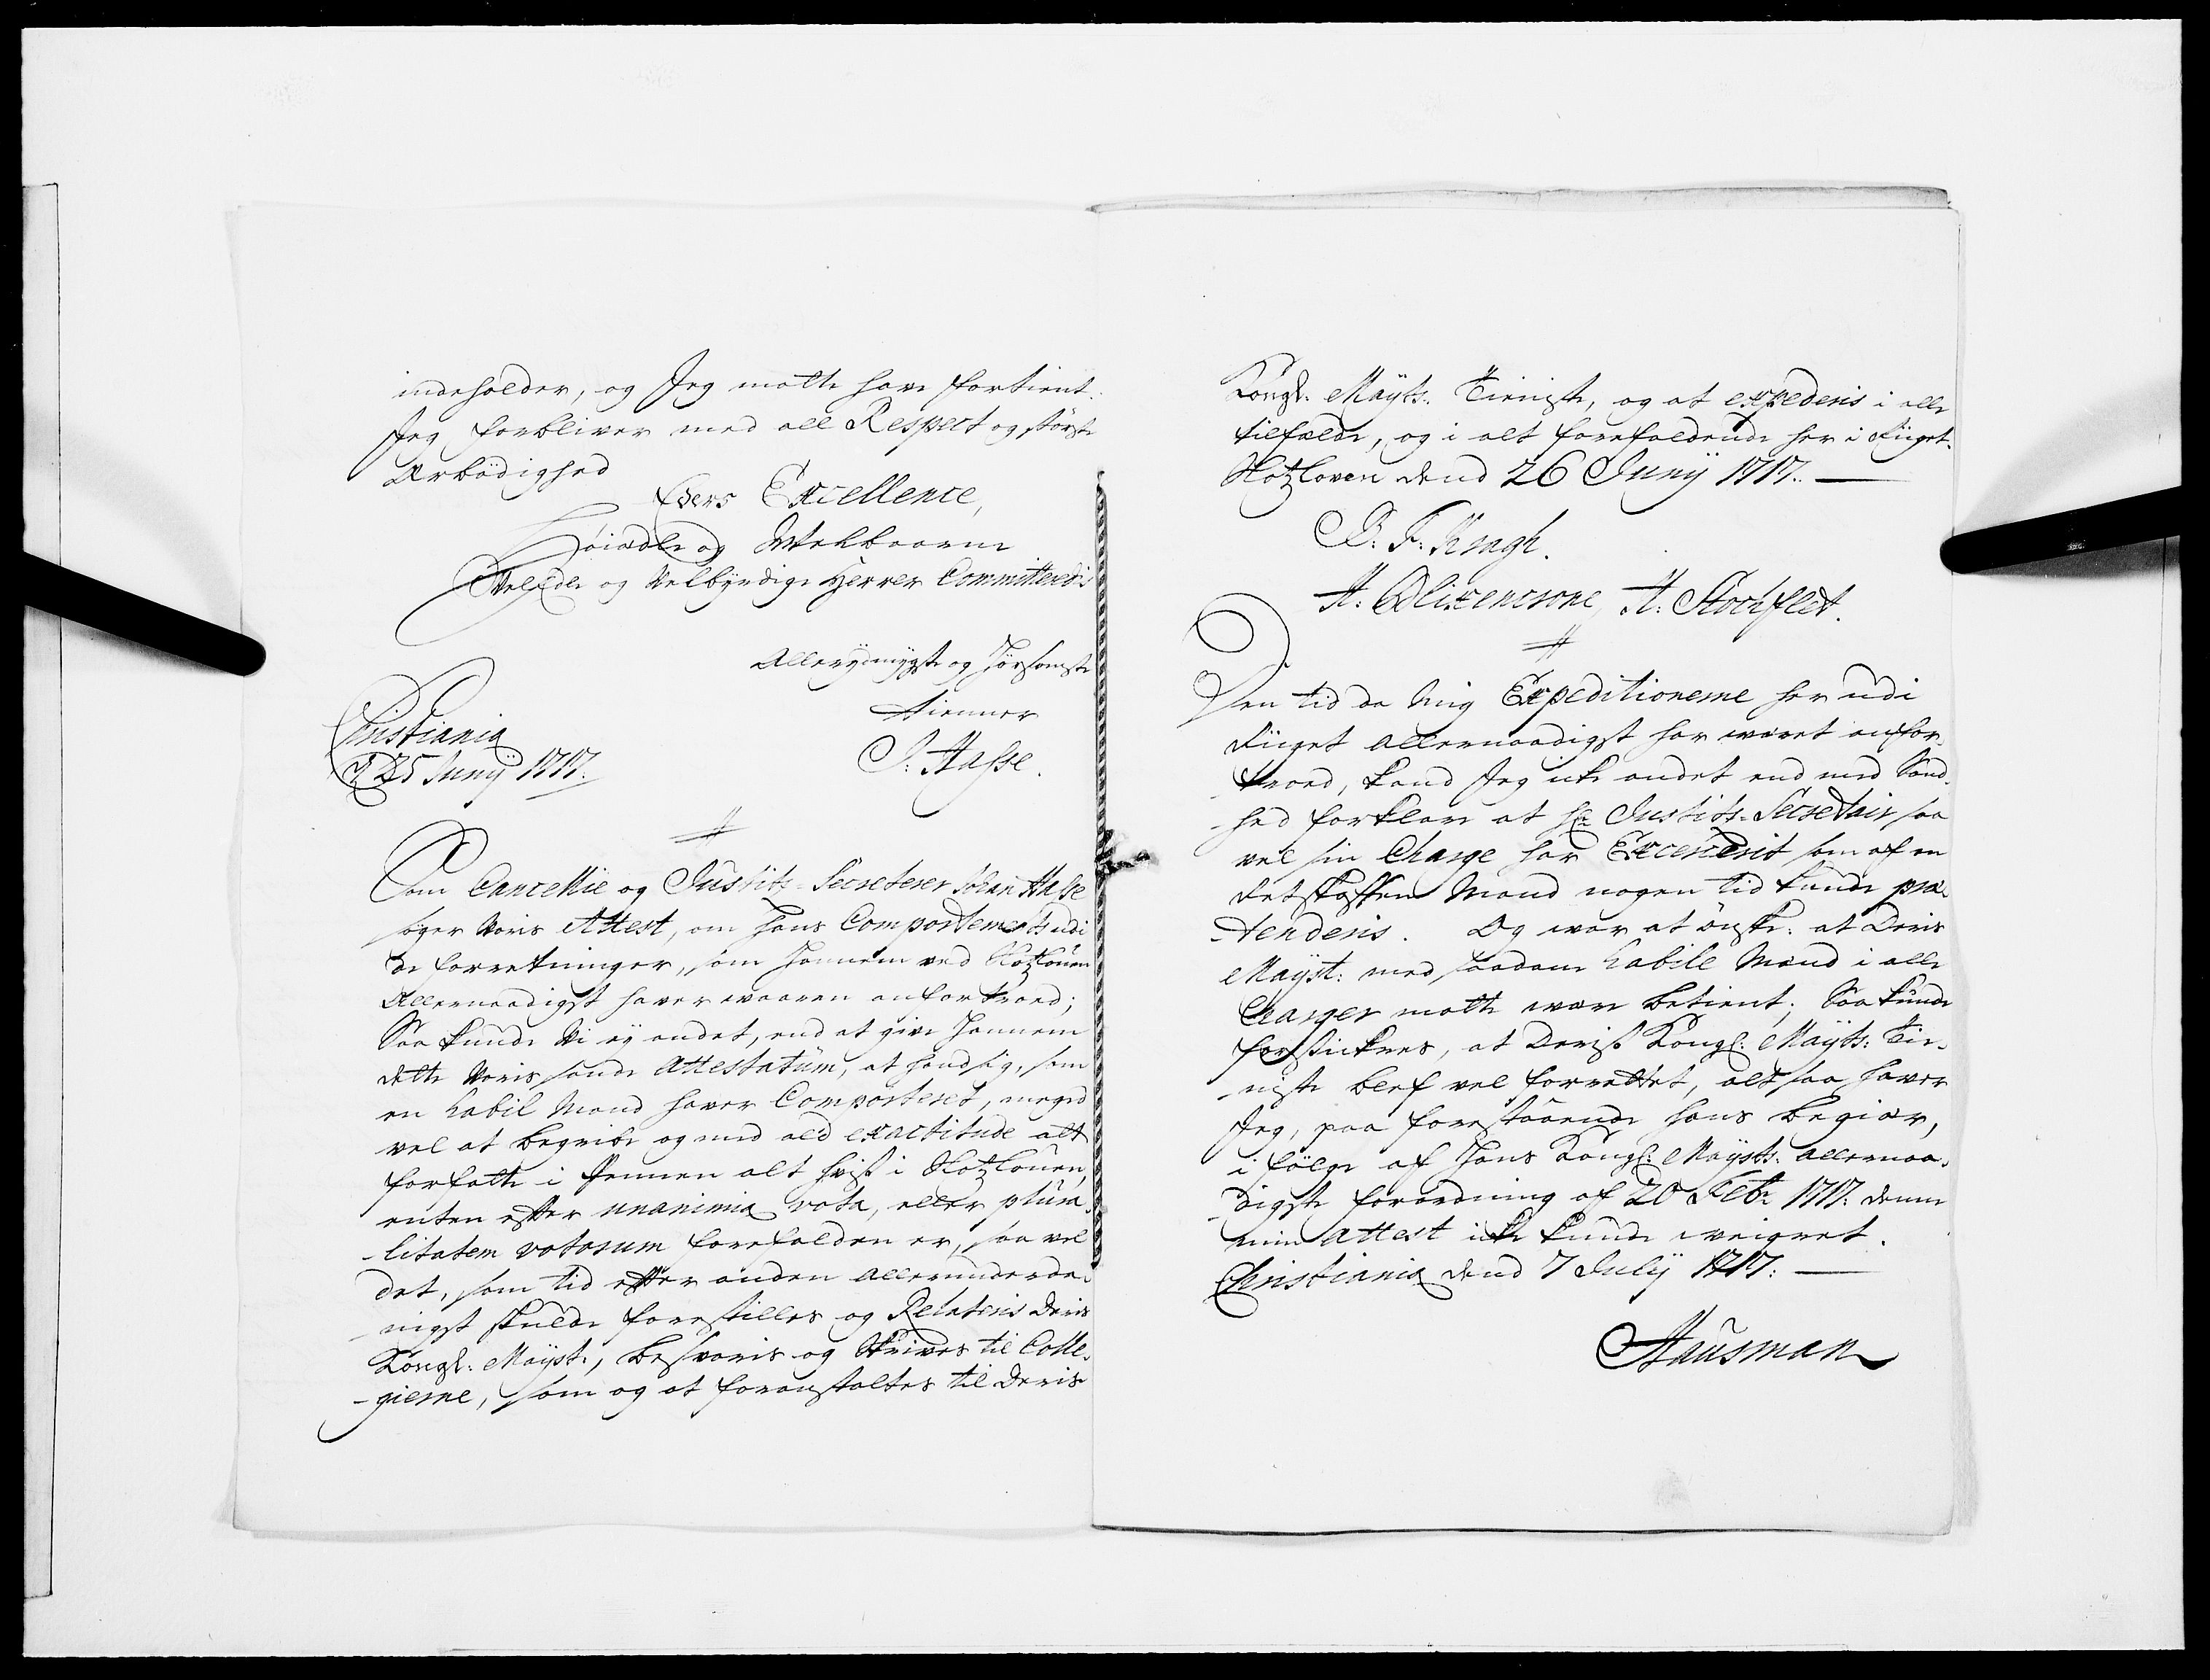 indeholder, og Jeg motte have fortient.
Jeg forbliver med all Respect og störste
Ærbödighed
Eders Excellence,
Höiædle og Welbaarne
VelEdle og Velbyrdige Herrer Committerede
Allerydmygste og Hörsomste
tienner
Christiania
d 25 Junÿ 1717.
J: Hasse.
Som Cancellie og Justits-Secreterer Johan Hasse
söger Voris Attest, om hans Comportements udi
de forretninger, som hannem ved Slotzlouen
Allernaadigst haver waaren anfortroed;
Saa kunde Vi ej andet, end at give hannem
dette Voris sande Attestatum, at hand sig, som
en habil Mand haver Comporteret, meged
vel at begribe og med ald exactitude alt
forfatte i Pennen alt hvis i Slotzlouen,
enten efter unanimia vota, eller plura-
-litatem votorum forefalden er, saa vel
det, som tid efter anden allerunderda-
-nigst skulde forestilles og Refereris Deris
Kongl: Mayst:, besvaris og Skrives til Colle-
-gierne, som og at foranstaltes til Deris
Kongl: Mayts: Tieniste, og at expederis i alle
tilfælde, og i alt forefaldende her i Riiget.
Slotzloven dend 26 Junÿ 1717.
B: F: Kragh.
H: C Blixencrone, H: Stockflet.
Den tid da Mig Expeditionerne her udi
Riiget allernaadigst har wæret anfor-
-troed, kand Jeg icke andet end med Sand-
-hed forklare at Hr Justits-Secretair saa
vel sin Charge har Excercerit som af en
retskaffen Mand nogen tid kunde præ-
-tenderis. Og war at önske: at Deris
Mayst: med saadane habile Mænd i alle
Charger motte være betient; Saa kunde
forsickres, at Deris Kongl: Mayts: Tie-
-niste blef vel forrettet, altsaa haver
Jeg, paa forestaaende hans begiær,
i fölge af Hans Kongl: Maysts: allernaa-
-digste forordning af 20 Febr 1717: denne
min Attest icke kunde weigret.
Christiania dend 7 Julÿ 1717:
Hausman